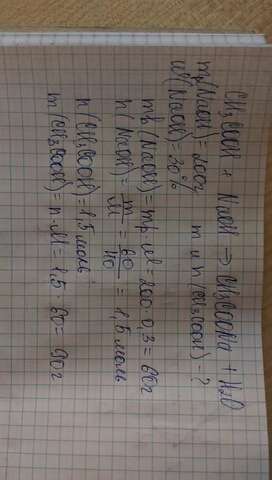 CH₃COOH + NaOH → CH₃COONa + H₂O
mр(NaOH) = 200г
ω(NaOH) = 30% m и n (CH₃COOH) - ?
mв(NaOH) = mр · ω = 200 · 0,3 = 60г
n(NaOH) = m/M = 60/40 = 1,5 моль
n(CH₃COOH) = 1,5 моль
m(CH₃COOH) = n · M = 1,5 · 60 = 90г